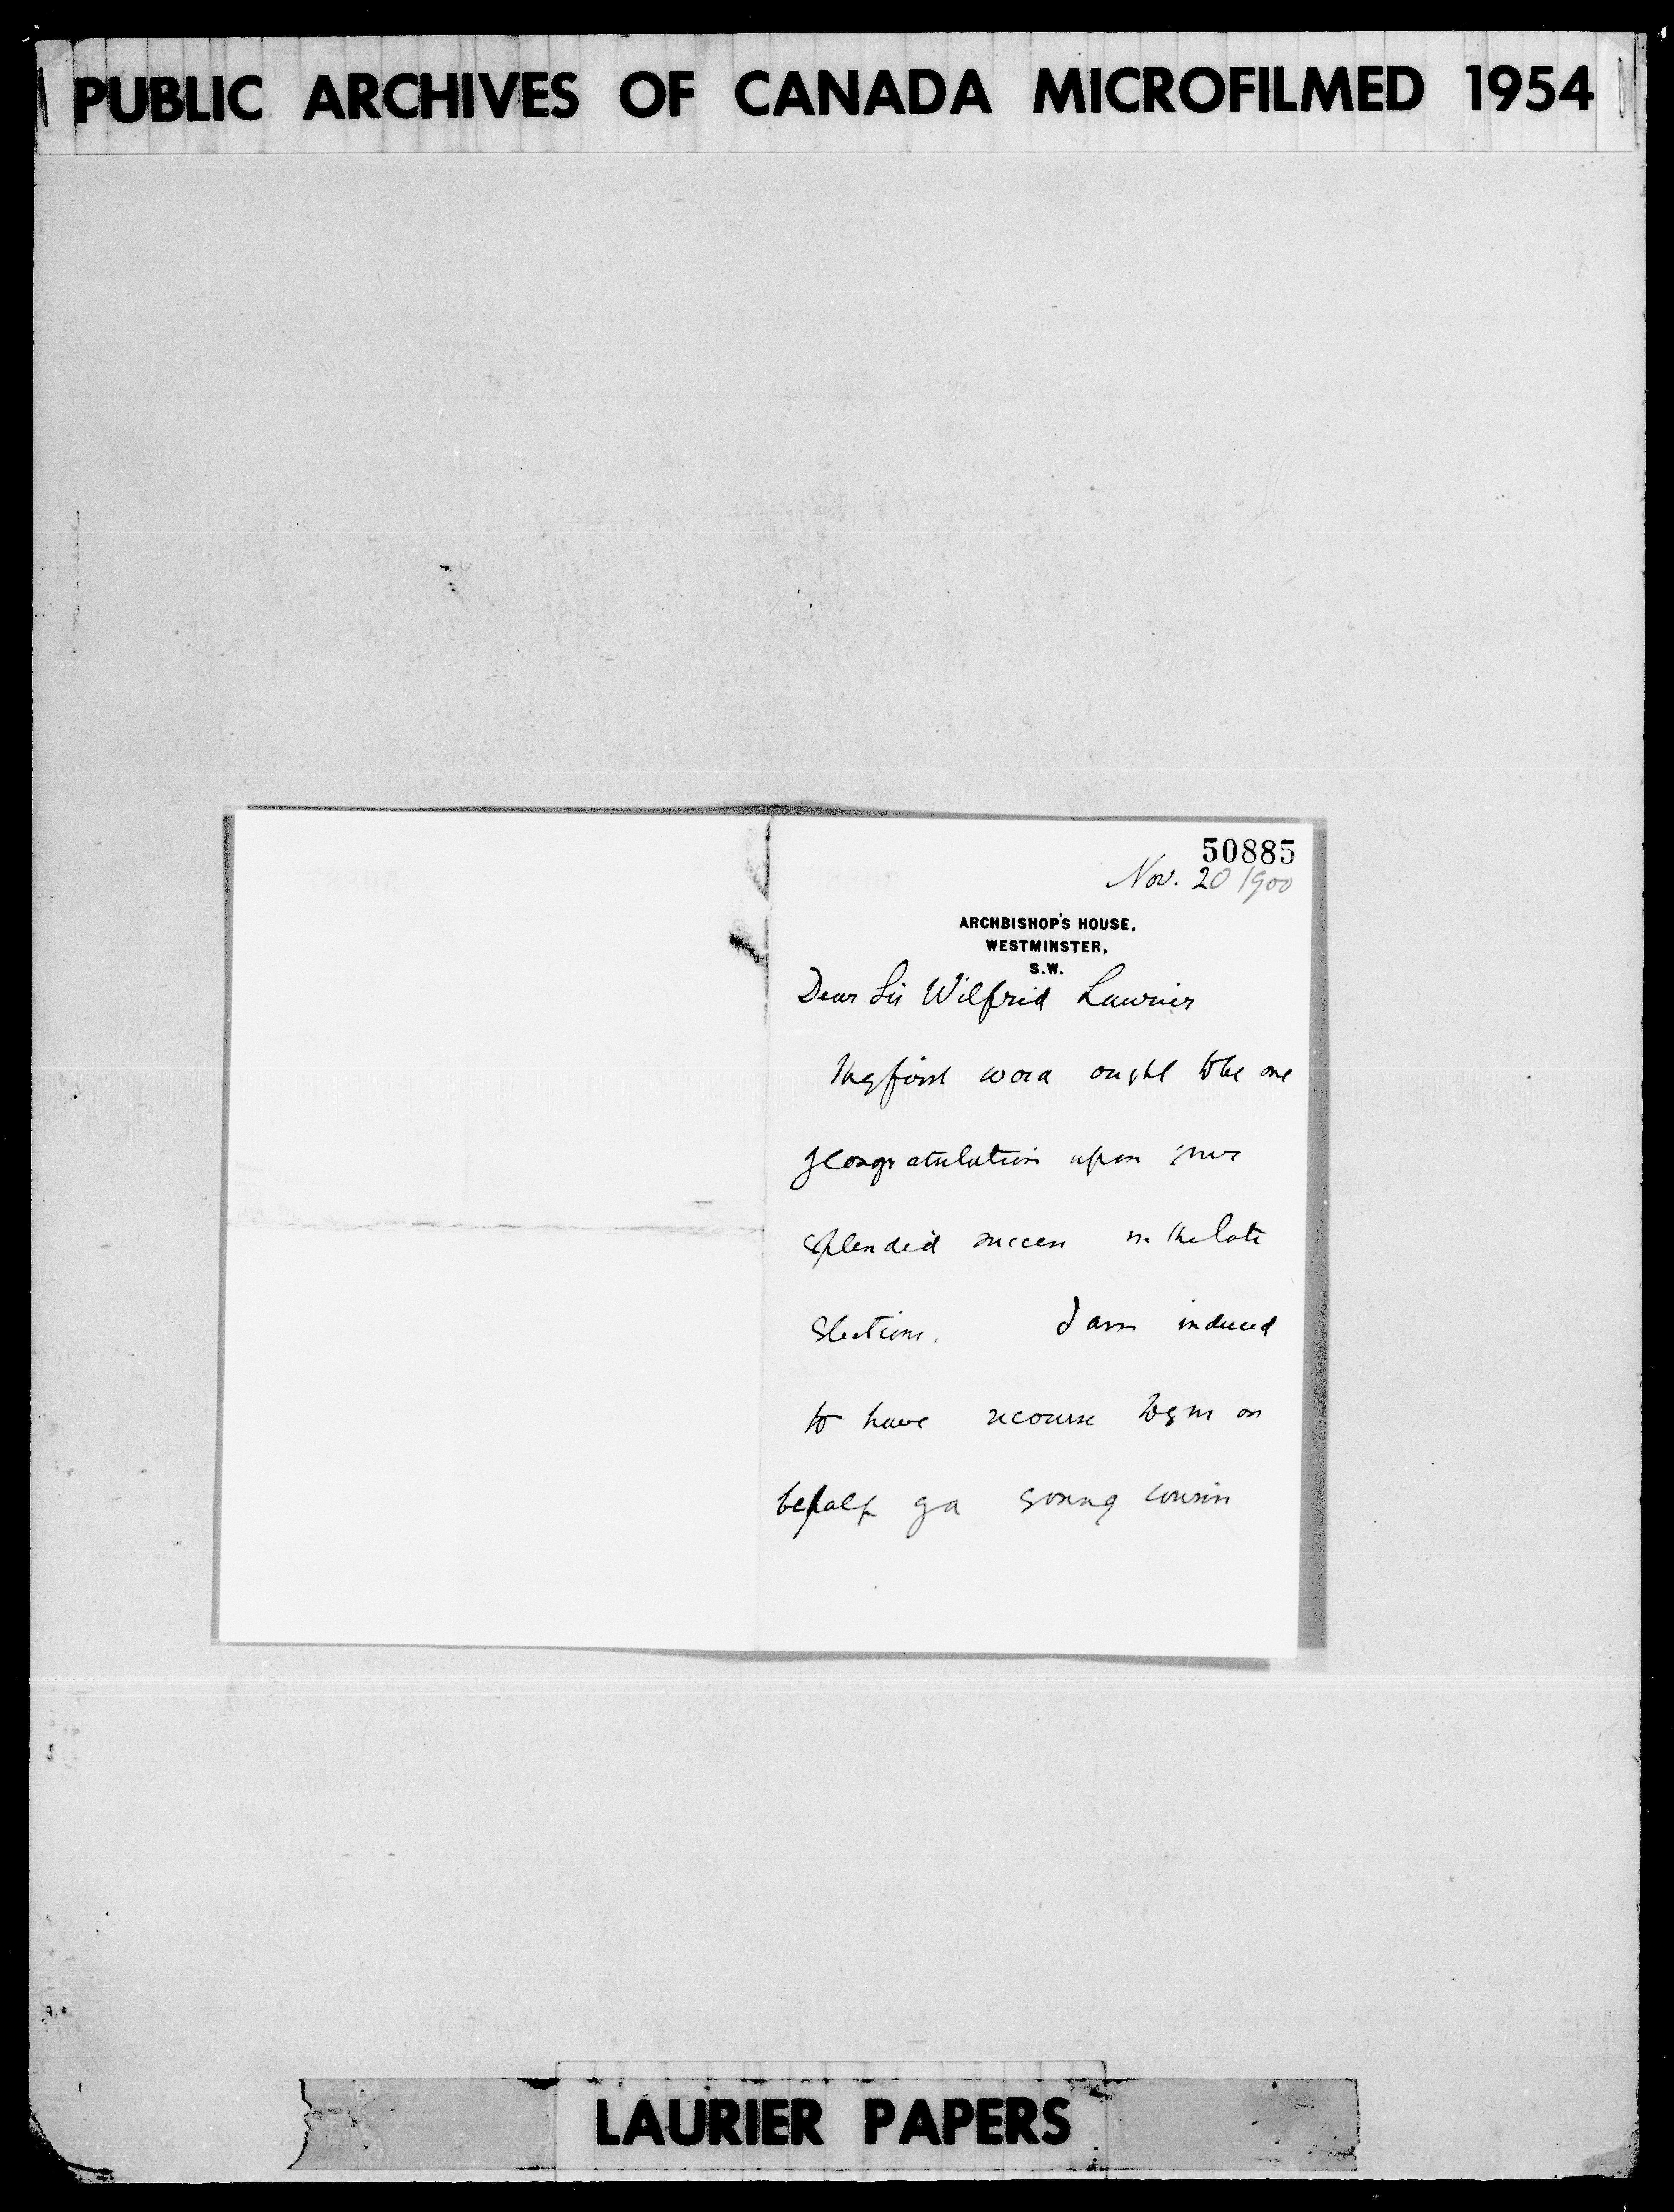 PUBLIC ARCHIVES OF CANADA MICROFILMED 1954
50885
Nov. 20 1900
ARCHBISHOP'S HOUSE,
WESTMINSTER,
S.W.
Dear Sir Wilfrid Laurier
My first word ought to be one
of congratulation upon your
splendid success in the late
Elections. I am induced
to have recourse to you on
behalf of a young cousin
LAURIER PAPERS